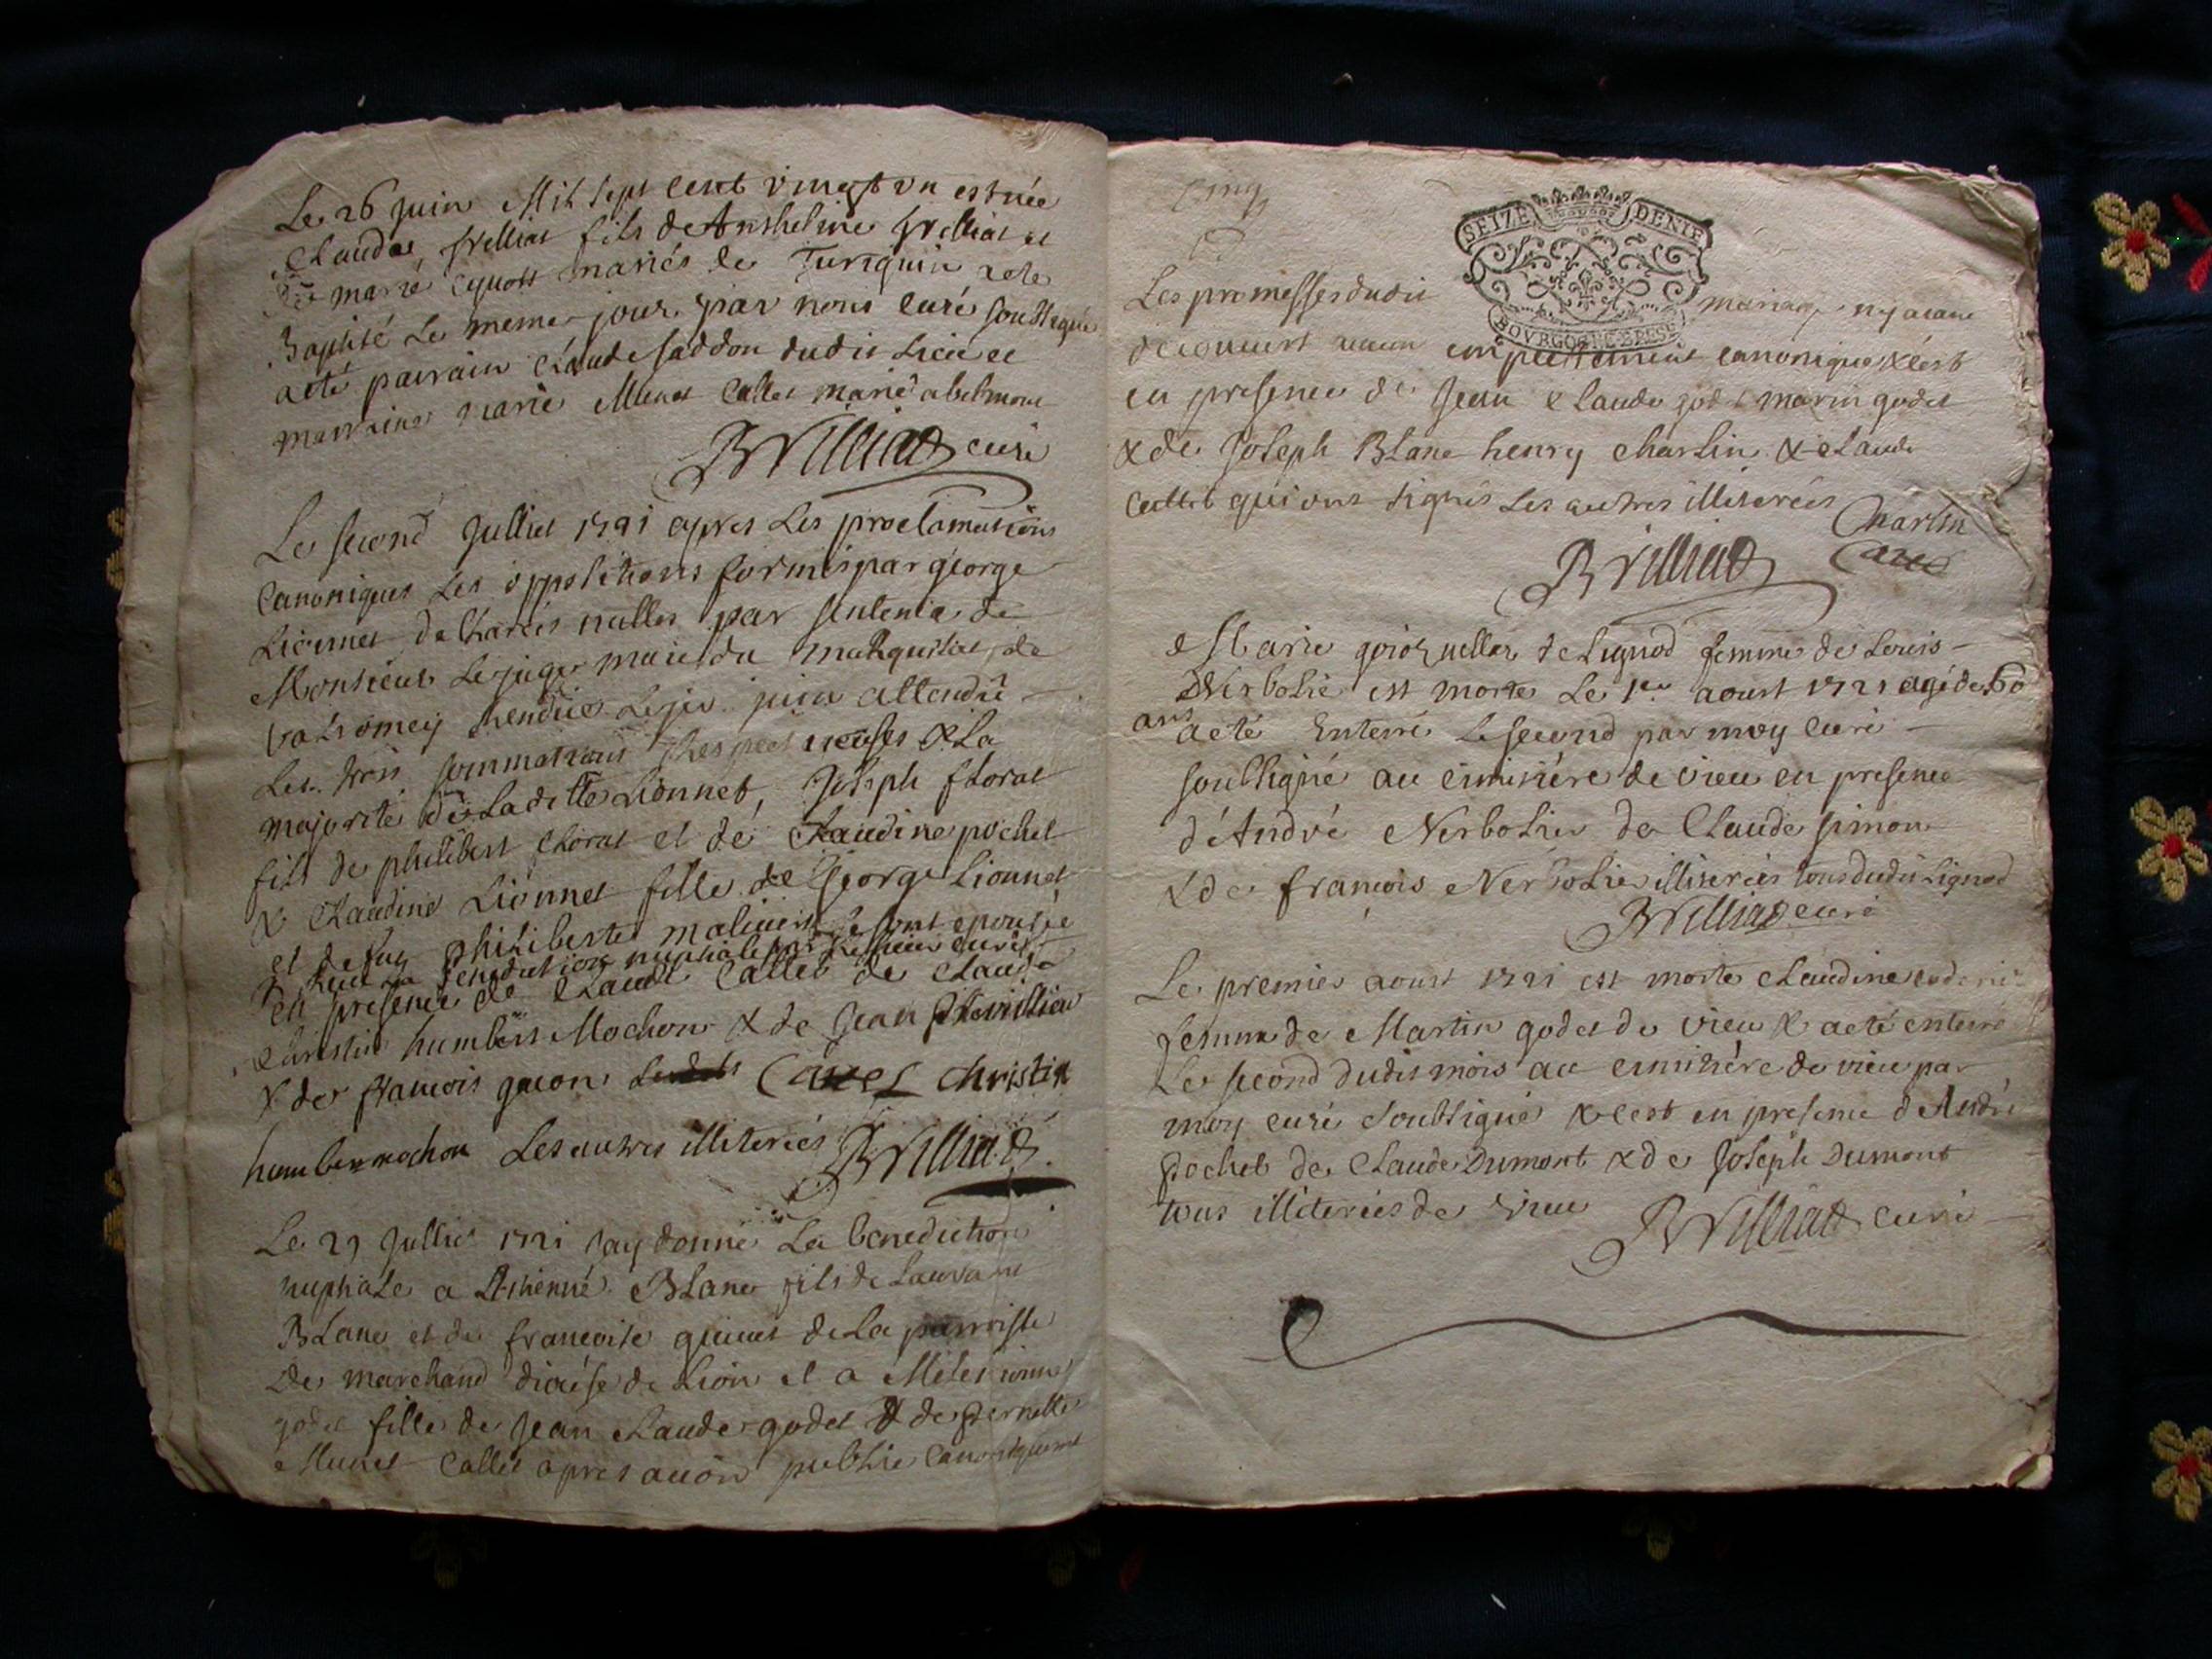 Le 26 juin Mil sept cent vingt un est née
Claude, fils de Anthelme et
de marie mariés de Turignin a ete
Baptisé le meme jour par nous curé soubsigné
a eté parrain Claude dudit Lieu et
marraine marie Munet Callet marié a belmont
Brilliad curé
Le second Julliet 1721 apres Les proclamations
Canoniques Les oppositions formés par george
Lionnet declarées nulles par sentence de
Monsieur Le juge maie du Marquisat de
Valromey rendüe Le juin attendu
Les trois sommations respectueuses & La
majorité de Laditte Lionnet, Joseph floret
fils de philibert floret et de Claudine pochet
& Claudine Lionnet fille de George Lionnet
et de philiberte se sont epousée
& Receu La benediction nuptiale par curé
en presence de Claude Callet de Claude
Christin humbert Mochon & de Jean
& de francois guon Cavet christin
humber mochon Les autres illiterés Brilliad
Le 29 Julliet 1721 jay donné La benediction
nuptiale a Ethienne Blanc fils de Laurant
BLanc et de francoise de La parroisse
De marchand diocése de Lion et a
godet fille de Jean Claude godet & de pernette
Munet Callet apres avoir publié Canoniquement
Cinq
SEIZE DENIE
BOVRGOGNE BRESSE
Les promesses dudit mariage ny aiant
decouvert aucun empechement canonique & c'est
en presence de Jean Claude godet marin godet
& de Joseph BLanc henry charlin & Claude
Callet qui ont signés Les autres illiterées Charlin
Brilliad Cavet
Marie de Lignod femme de Louis
Nerbolié est morte Le 1er aoust 1721 agé de 60
ans a eté Enterré Le second par moy curé
soubsigné au cimitiére de vieu en presence
d'André Nerbolier de Claude simon
& de francois Nerbolier illiterées tous dudit Lignod
Brilliad curé
Le premier aoust 1721 est morte Claudine
femme de Martin godet de vieu & a eté enterré
Le second dudit mois au cimitiére de vieu par
moy curé soubsigné & c'est en presence d'André
pochet de Claude Dumont & de Joseph Dumont
tous illiterées de vieu Brilliad curé